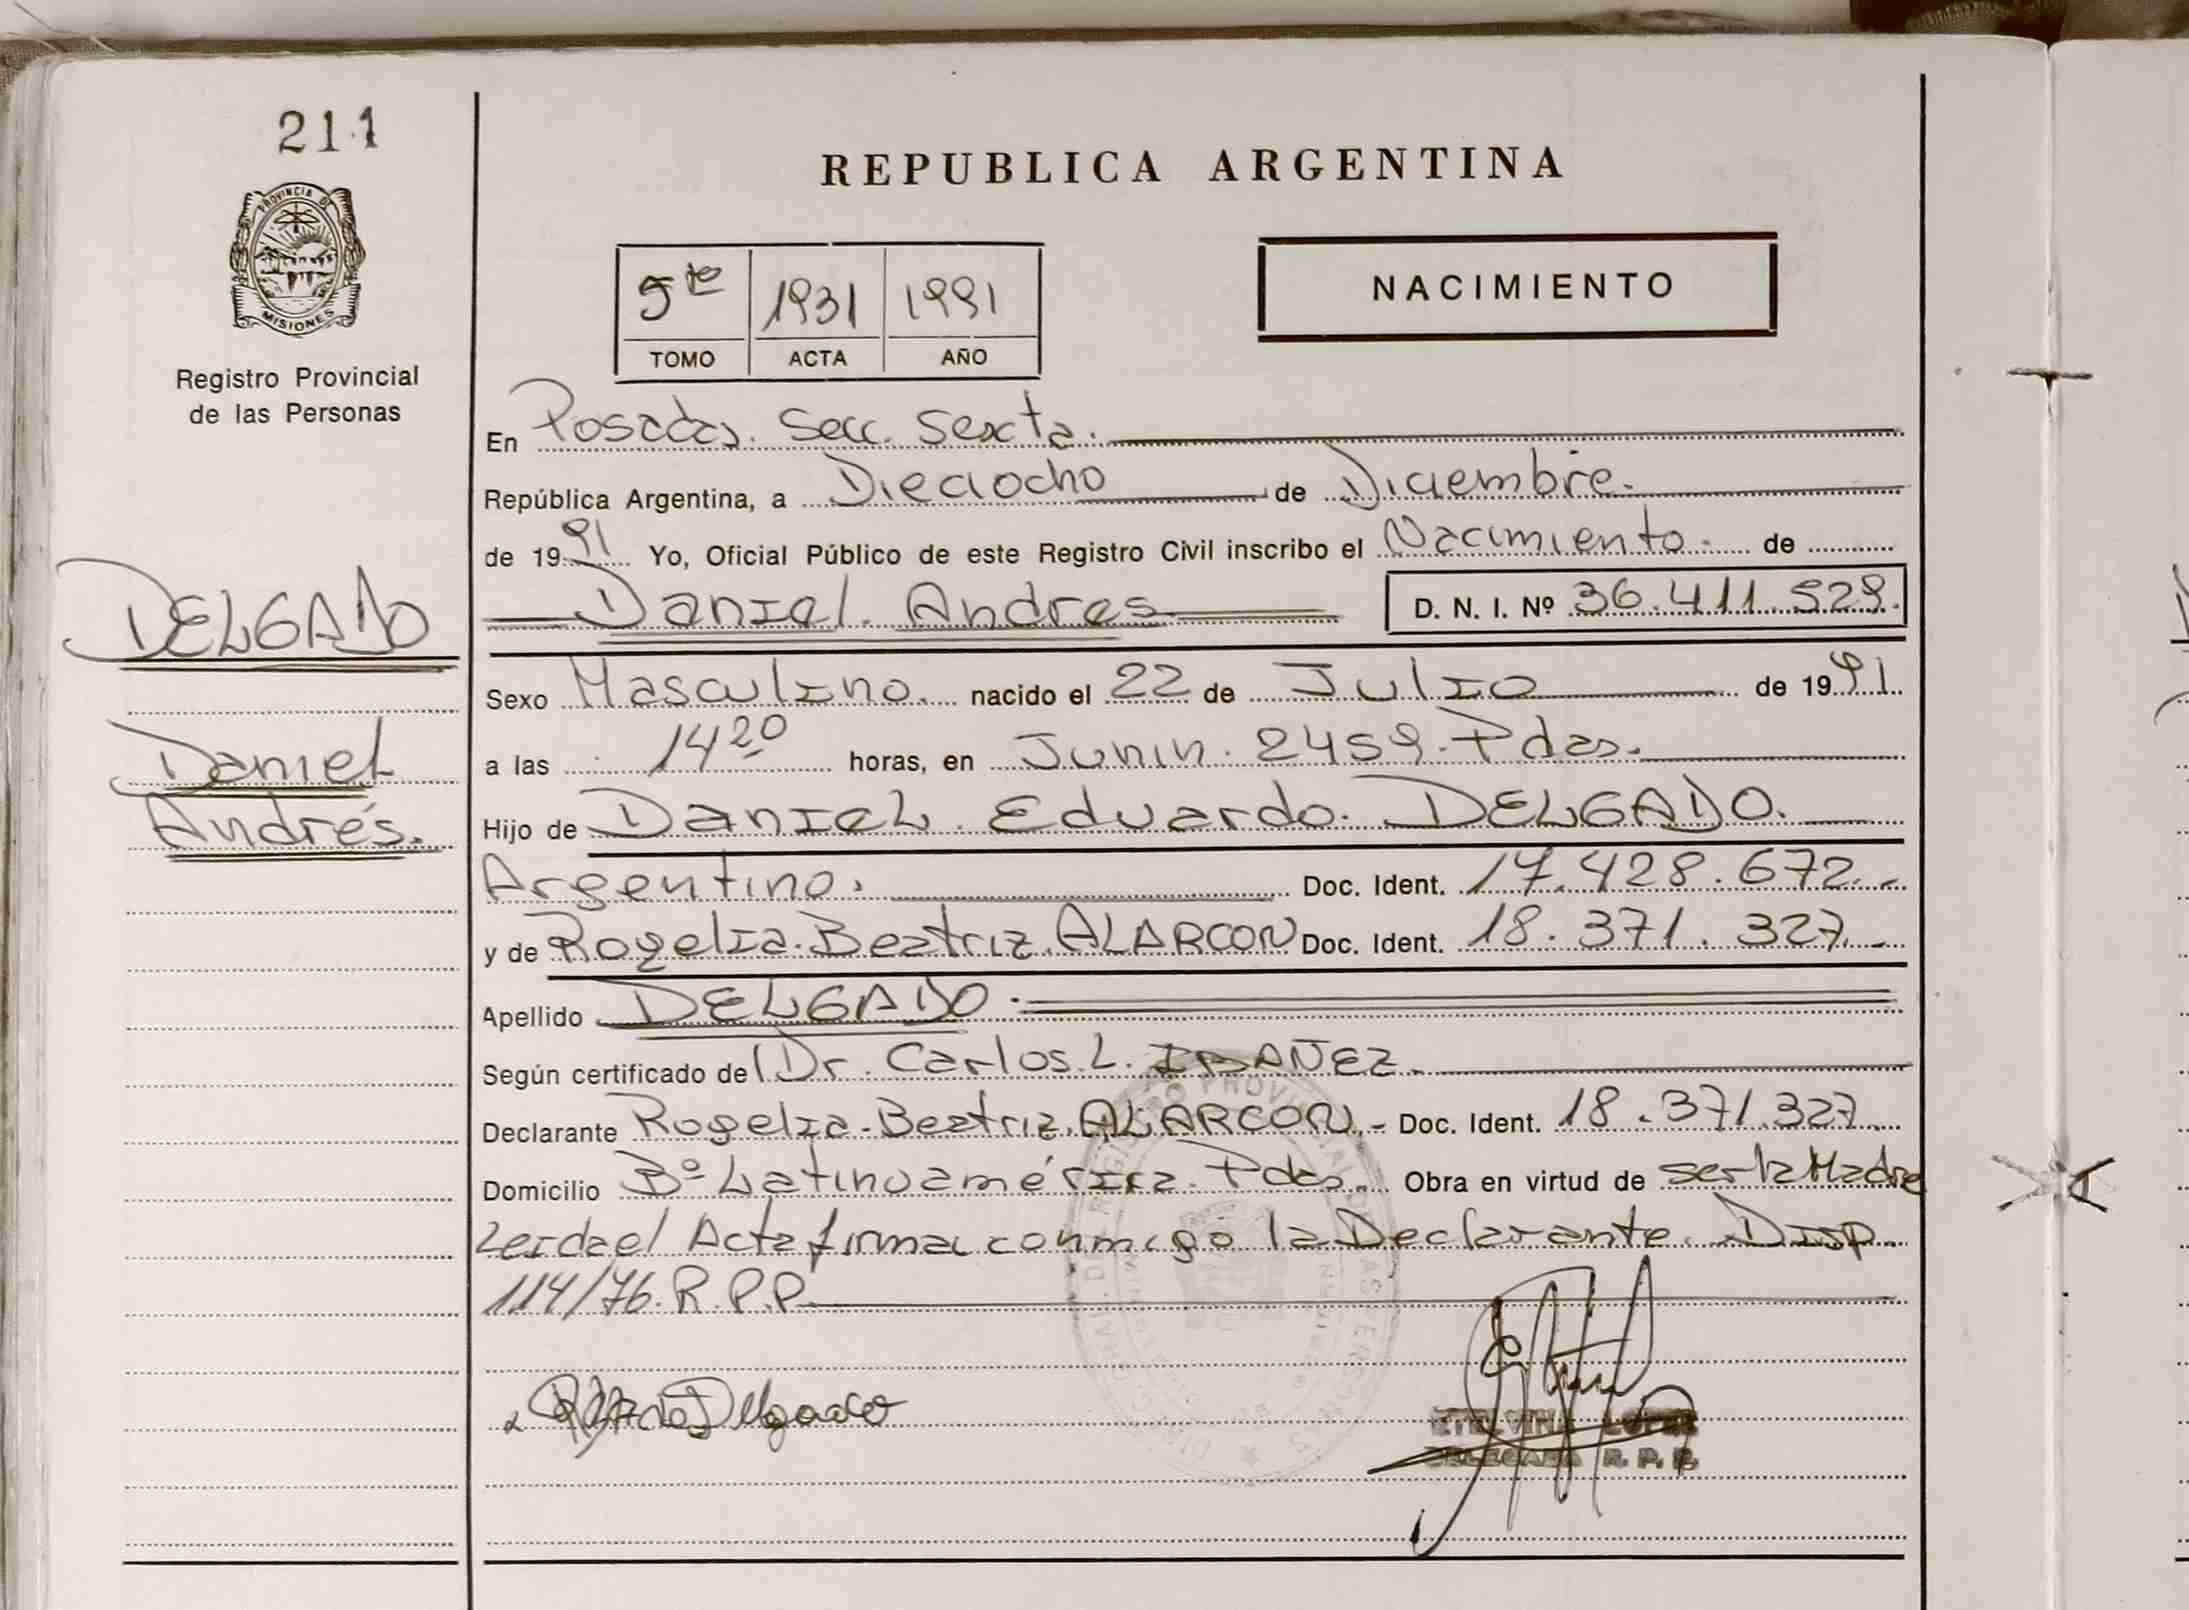 211
PROVINCIA DE
MISIONES
Registro Provincial
de las Personas
DELGADO
Daniel
Andrés.
REPUBLICA ARGENTINA
5to 1931 1991
TOMO ACTA AÑO
NACIMIENTO
En Posadas. Secc. Sexta.
República Argentina, a Dieciocho de Diciembre.
de 1991 Yo, Oficial Público de este Registro Civil inscribo el Nacimiento. de
Daniel. Andres D. N. I. Nº 36.411.529.
Sexo Masculino. nacido el 22 de Julio de 1991
a las 14 20 horas, en Junin. 2459. Pdas.
Hijo de Daniel. Eduardo. DELGADO.
Argentino. Doc. Ident. 17.428.672.-
y de Rogelia. Beatriz. ALARCON Doc. Ident. 18.371.327.-
Apellido DELGADO.
Según certificado del Dr. Carlos. L. IBAÑEZ.
Declarante Rogelia. Beatriz. ALARCON.- Doc. Ident. 18.371.327
Domicilio Bº Latinoamérica. Pdas. Obra en virtud de ser la Madre
Leida el Acta firma conmigo la Declarante. Disp.
114/76. R.P.P.
Delgado
ETELVINA LOPEZ
DELEGADA R. P. P.